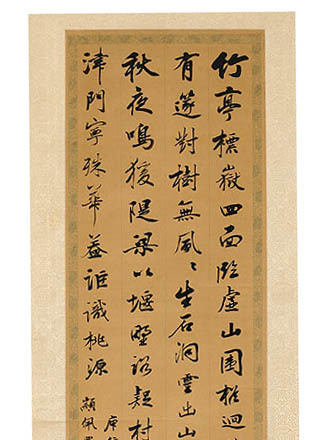 竹亭標嶽四面臨虛山圍迴
有邃對樹無風〻生石洞雲出山
秋夜鳴猨隄梁以堰野路疑村
津門寧殊華蓋詎識桃源
庚
佩